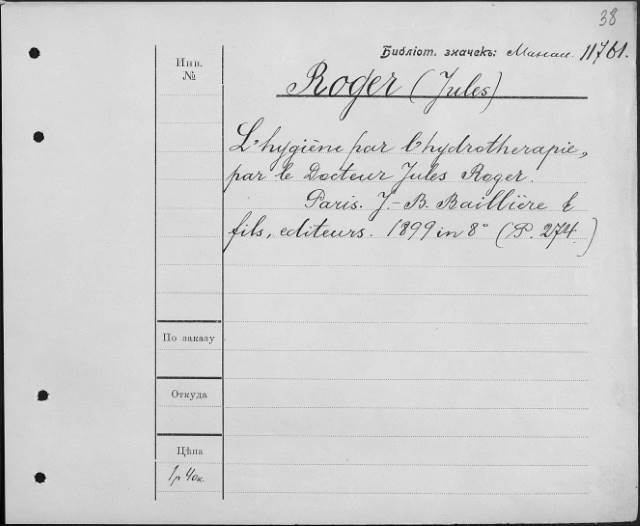 38
Библіот. значекъ: 11761.
Инв.
№
Roger (Jules)
L'hygiène par l'hydrotherapie,
par le Docteur Jules Roger.
Paris. J.-B. Baillière &
fils, editeurs. 1899 in 8° (P. 274.)
По заказу
Откуда
Цѣна
1р 40к.